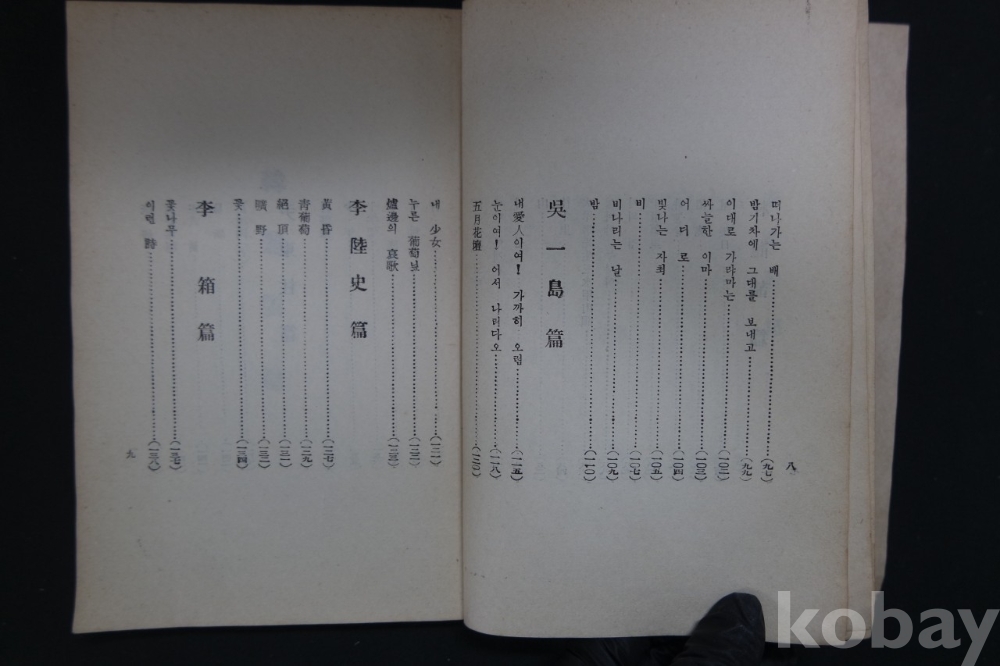 떠나가는 배 (九七)
밤기차에 그대를 보내고 (九九)
이대로 가랴마는 (一〇二)
싸늘한 이마 (一〇三)
어디로 (一〇四)
빛나는 자최 (一〇五)
비 (一〇七)
비나리는 날 (一〇九)
밤 (一一〇)
吳一島篇
내 愛人이여! 가까히 오렴 (一一五)
눈이여! 어서 나려다오 (一一八)
五月花壇 (一二〇)
八
내 少女 (一二一)
누른 葡萄닢 (一二二)
爐邊의 哀歌 (一二三)
李陸史篇
黃昏 (一二七)
靑葡萄 (一二九)
絕頂 (一三一)
曠野 (一三二)
꽃 (一三四)
李箱篇
꽃나무 (一三七)
이런 詩 (一三八)
九
kobay